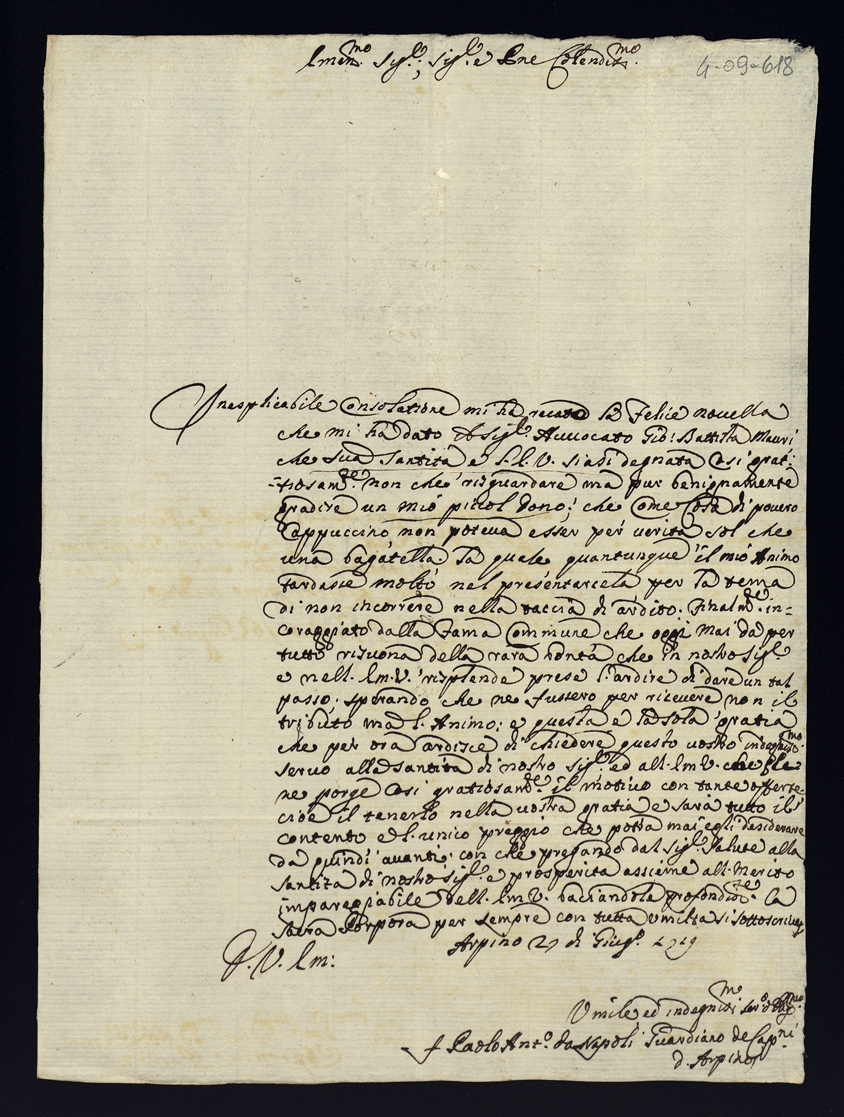 Emin.mo Sig.re, Sig.re e Pne Colendis.mo
4-09-618
Inesplicabile Consolatione mi ha recato la felice novella
che mi ha dato il Sig.r Avvocato Gio: Battista Mauri
che Sua Santità e S.E.V. siasi degnata Così grat-
-tiosam.te non che risguardare ma pur benignamente
gradire un mio piccol dono; che Come Cosa di povero
Cappuccino non poteva esser per verità sol che
una bagatella. la quale quantunque il mio Animo
tardasse molto nel presentarcela per la tema
di non incorrere nella taccia di ardito. Finalm.te in-
coraggiato dalla fama Commune che oggi mai da per
tutto risuona della rara bontà che in nostro Sig.re
e nell' Em.V. risplende prese l'ardire di dare un tal
passo. sperando che ne fussero per ricevere non il
tributo ma l'Animo; e questa è la sola gratia
che per ora ardisce di chiedere questo vostro indegnis.mo
servo alla Santità di nostro Sig.re ed all'Em.V. che
ne porge Così gratiosam.te il motivo con tante offerte
cioè il tenerlo nella vostra gratia e sarà tutto il
contento e l'unico preggio che possa mai egli desiderare
da quindi avanti. con che pregando dal Sig.re Salute alla
Santità di nostro Sig.re e prosperità assieme all'Merito
impareggiabile dell'Em.V. baciandola profondis.te la
Sacra Porpora per sempre con tutta umiltà si sottoscrive
Arpino 27 di Giug.o 1729
D.V.Em:
Umile ed indegnis.mo ser.e
f Paolo Ant.o da Napoli Guardiano de Cap.ni
d'Arpino